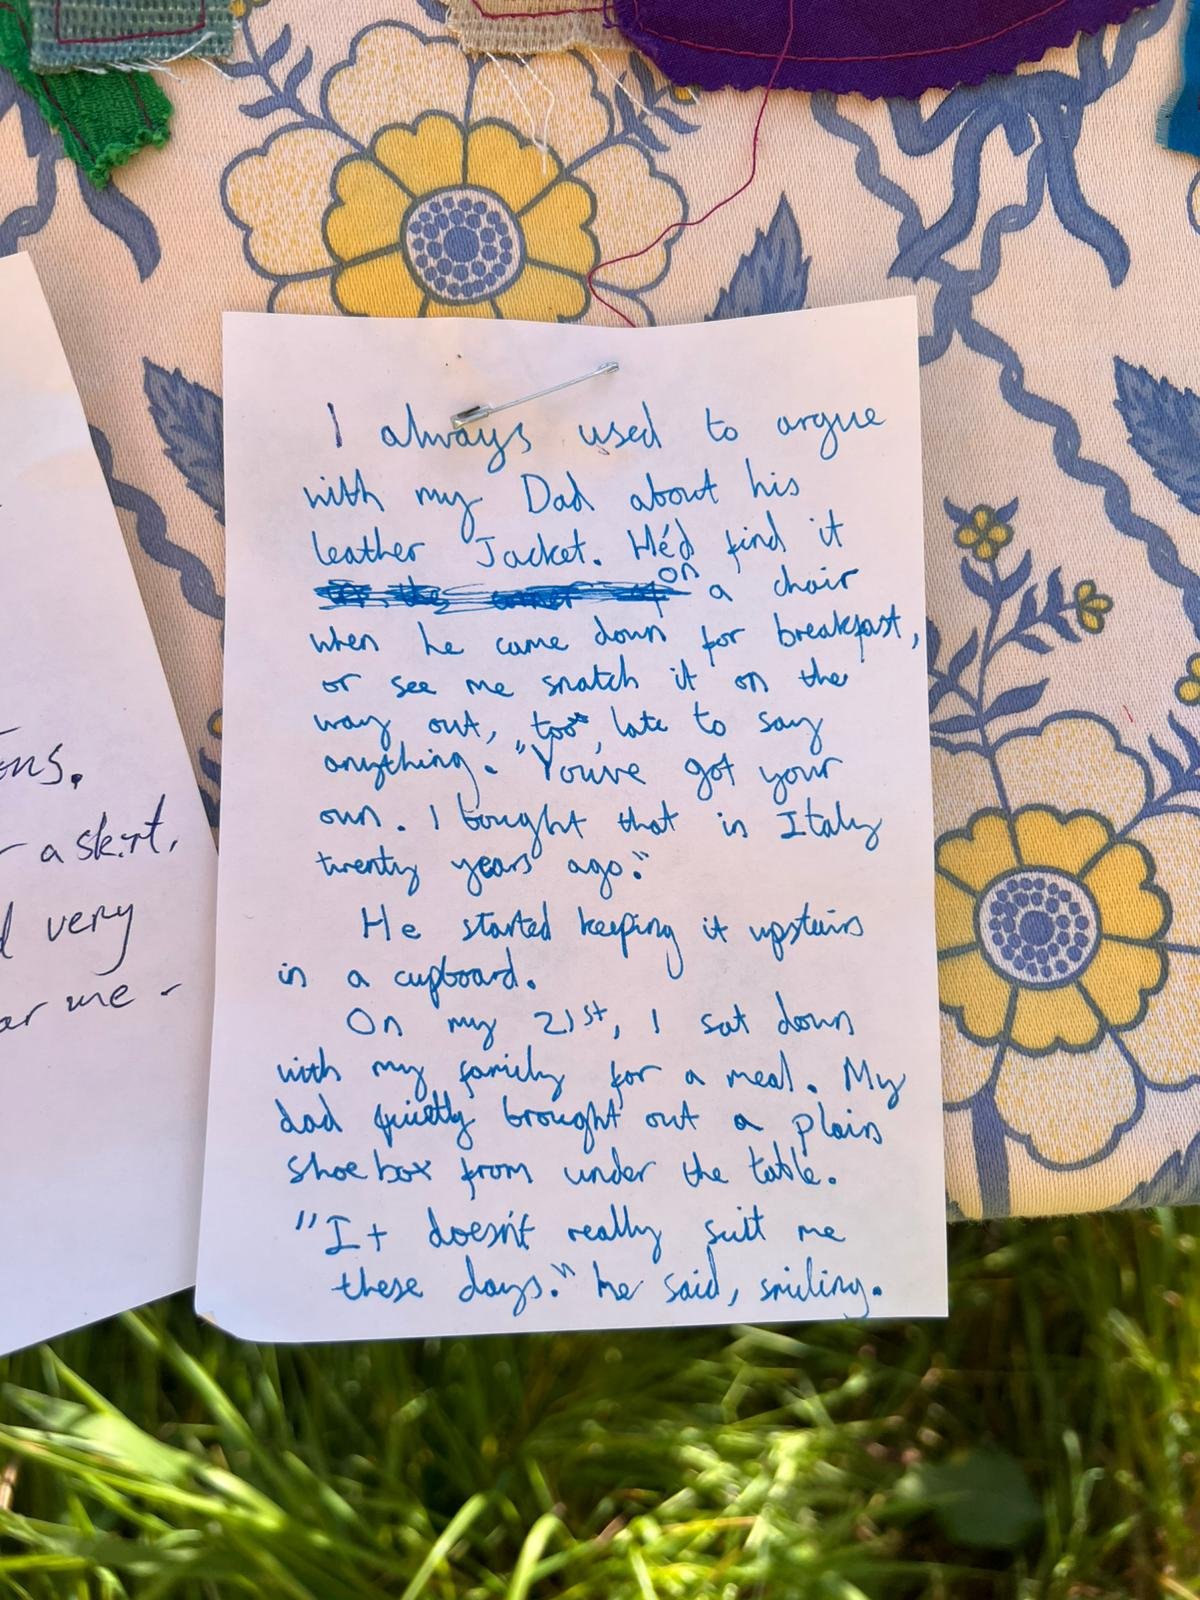 I always used to argue
with my Dad about his
leather Jacket. He'd find it
on a chair
when he came down for breakfast,
or see me snatch it on the
way out, too late to say
anything. "You've got your
own. I bought that in Italy
twenty years ago."
He started keeping it upstairs
in a cupboard.
On my 21st, I sat down
with my family for a meal. My
dad quietly brought out a plain
shoebox from under the table.
"It doesn't really suit me
these days." he said, smiling.
a skirt,
very
me -